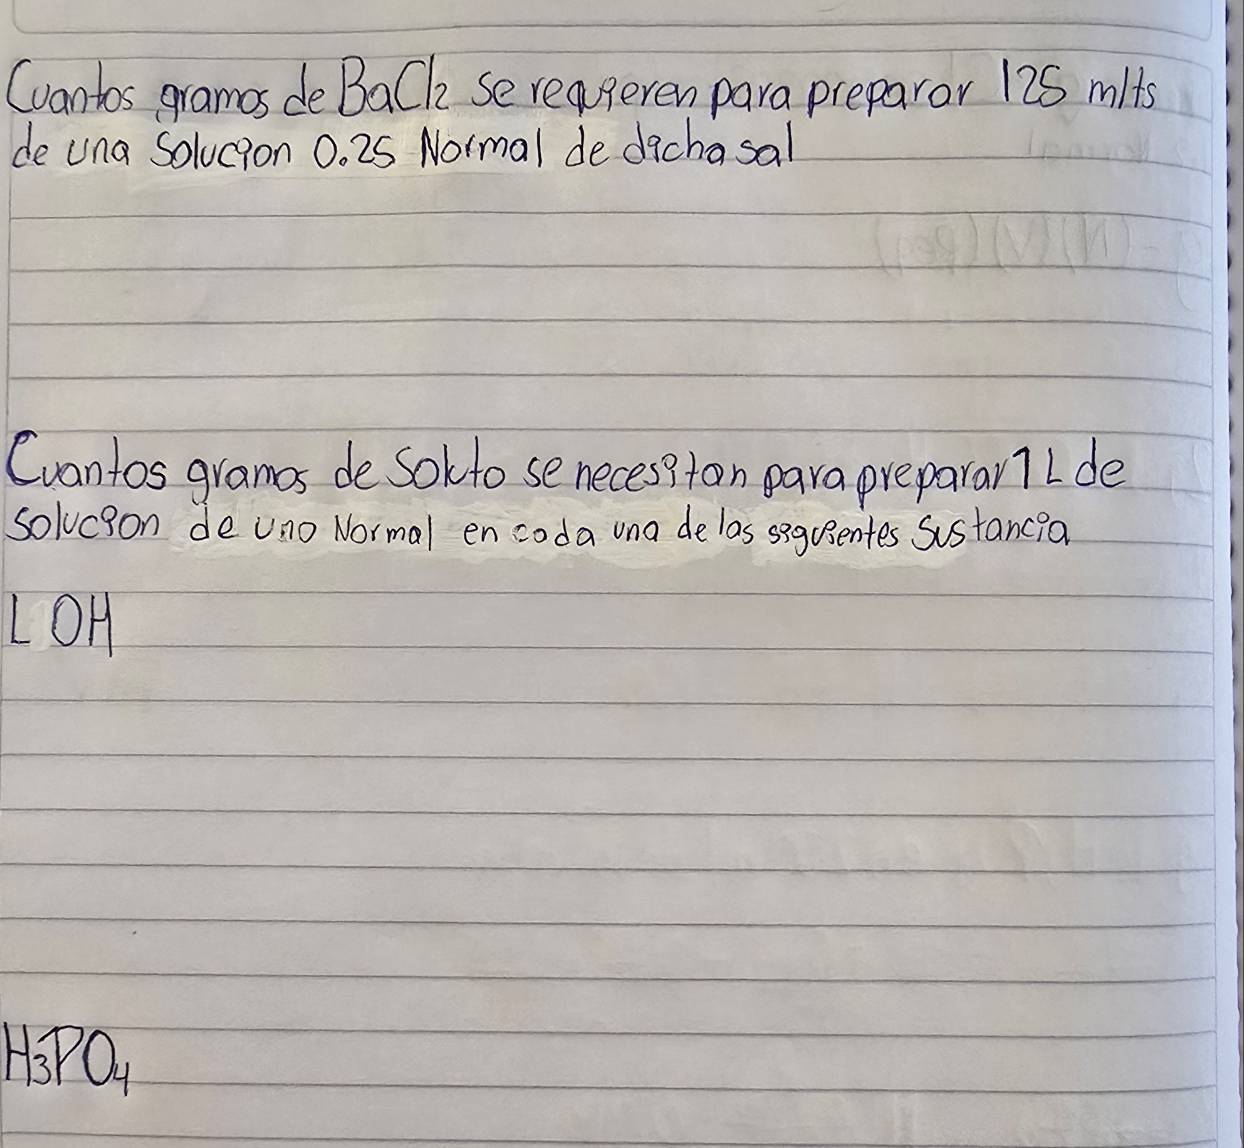 Cuantos gramos de BaCl2 se requieren para preparar 125 mlts
de una Solucion 0.25 Normal de dicha sal
Cuantos gramos de Soluto se necesitan para preparar 1L de
solucion de uno Normal en cada una de las siguientes Sustancia
L OH
H3PO4